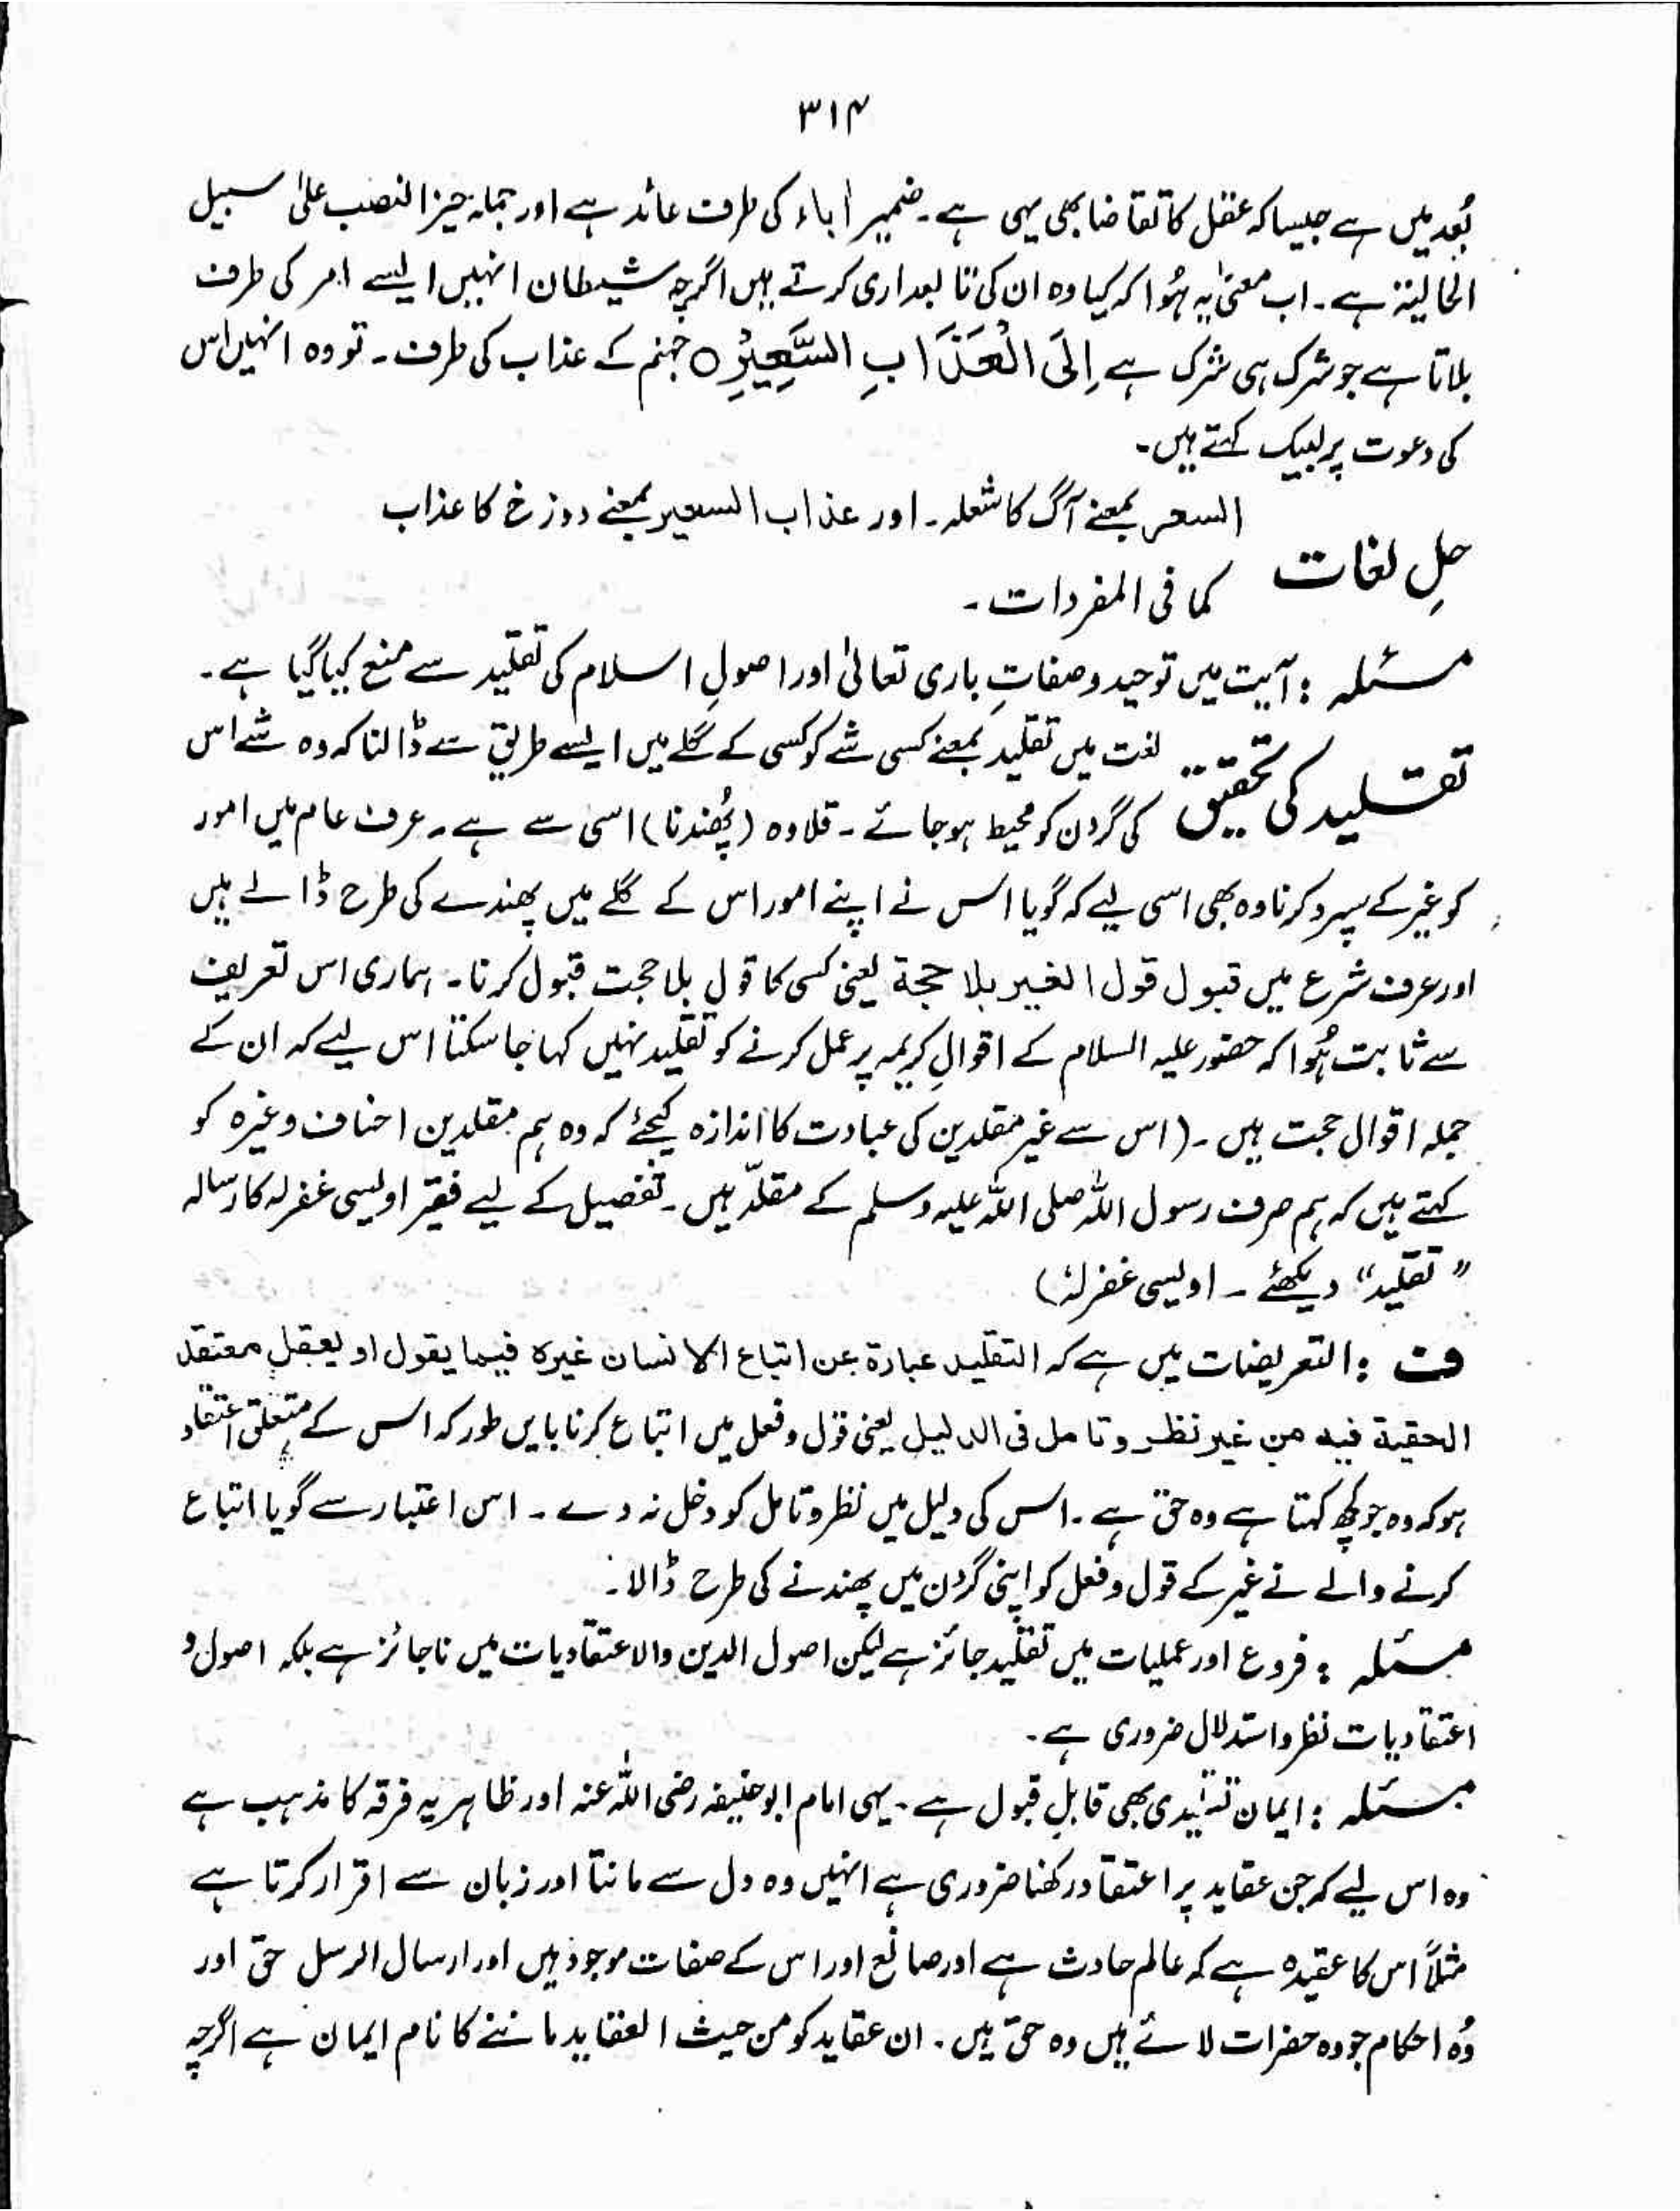 ۳۱۴
بُعد میں ہے جیسا کہ عقل کا تقاضا بھی یہی ہے۔ ضمیر اٰباء کی طرف عائد ہے اور جملہ حیز النصب علیٰ سبیل
الحالیتہ ہے۔ اب معنیٰ یہ ہُوا کہ کیا وہ ان کی تابعداری کرتے ہیں اگرچہ شیطان انہیں ایسے امر کی طرف
بلاتا ہے جو شرک ہی شرک ہے اِلَی الْعَذَابِ السَّعِیْرِ ○ جہنم کے عذاب کی طرف۔ تو وہ انہیں اس
کی دعوت پر لبیک کہتے ہیں۔
السعر بمعنے آگ کا شعلہ۔ اور عذاب السعیر بمعنے دوزخ کا عذاب
حلِ لغات
کما فی المفردات۔
مسئلہ : آیت میں توحید و صفاتِ باری تعالیٰ اور اصولِ اسلام کی تقلید سے منع کیا گیا ہے۔
لغت میں تقلید بمعنے کسی شے کو کسی کے گلے میں ایسے طریق سے ڈالنا کہ وہ شے اس
تقلید کی تحقیق
کی گردن کو محیط ہو جائے۔ قلادہ (پُھندنا) اسی سے ہے۔ عرف عام میں امور
کو غیر کے سپرد کرنا وہ بھی اسی لیے کہ گویا اس نے اپنے امور اس کے گلے میں پھندے کی طرح ڈالے ہیں
اور عرف شرع میں قبول قول الغیر بلا حجۃ یعنی کسی کا قول بلا حجت قبول کرنا۔ ہماری اس تعریف
سے ثابت ہُوا کہ حضور علیہ السلام کے اقوالِ کریمہ پر عمل کرنے کو تقلید نہیں کہا جا سکتا اس لیے کہ ان کے
جملہ اقوال حجت ہیں۔ (اس سے غیر مقلدین کی عبادت کا اندازہ کیجئے کہ وہ ہم مقلدین احناف وغیرہ کو
کہتے ہیں کہ ہم صرف رسول اللہ صلی اللہ علیہ وسلم کے مقلّد ہیں۔ تفصیل کے لیے فقیر اویسی غفرلہ کا رسالہ
"تقلید" دیکھئے۔ اویسی غفرلہٗ)
ف : التعریضات میں ہے کہ التقلید عبارۃ عن اتباع الانسان غیرہ فیما یقول او یعقل معتقد
الحقیۃ فیہ من غیر نظر و تامل فی الدلیل یعنی قول و فعل میں اتباع کرنا بایں طور کہ اس کے متعلق اعتقاد
ہو کہ وہ جو کچھ کہتا ہے وہ حق ہے۔ اس کی دلیل میں نظر و تامل کو دخل نہ دے۔ اس اعتبار سے گویا اتباع
کرنے والے نے غیر کے قول و فعل کو اپنی گردن میں پھندنے کی طرح ڈالا۔
مسئلہ : فروع اور عملیات میں تقلید جائز ہے لیکن اصول الدین والاعتقادیات میں ناجائز ہے بلکہ اصول و
اعتقادیات نظر و استدلال ضروری ہے۔
مسئلہ : ایمان تقلیدی بھی قابلِ قبول ہے۔ یہی امام ابوحنیفہ رضی اللہ عنہ اور ظاہریہ فرقہ کا مذہب ہے
وہ اس لیے کہ جن عقاید پر اعتقاد رکھنا ضروری ہے انہیں وہ دل سے مانتا اور زبان سے اقرار کرتا ہے
مثلاً اس کا عقیدہ ہے کہ عالم حادث ہے اور صانع اور اس کے صفات موجود ہیں اور ارسال الرسل حق اور
وُہ احکام جو وہ حضرات لائے ہیں وہ حق ہیں۔ ان عقاید کو من حیث العقاید ماننے کا نام ایمان ہے اگرچہ